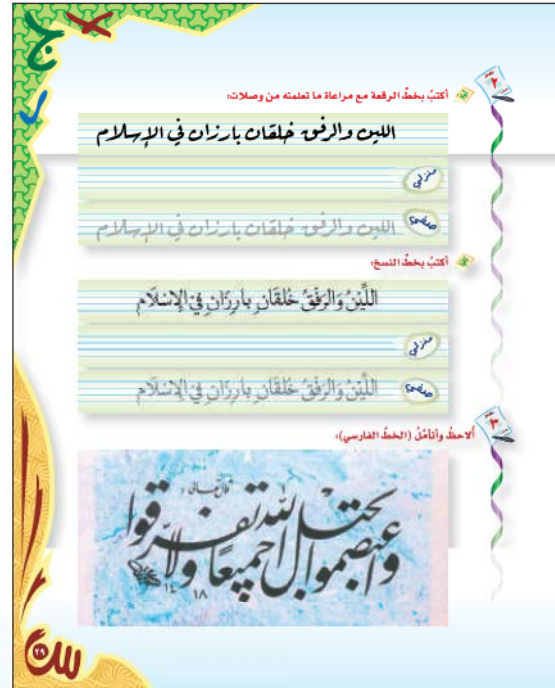 ٢
أكتبُ بخطِّ الرقعة مع مراعاة ما تعلمته من وصلات:
اللين والرفق خلقان بارزان في الإسلام
منزلي
صفي
اللين والرفق خلقان بارزان في الإسلام
أكتبُ بخطِّ النسخ:
اللِّيْنُ وَالرِّفْقُ خُلُقَانِ بَارِزَانِ فِي الإِسْلَامِ
منزلي
صفي
اللِّيْنُ وَالرِّفْقُ خُلُقَانِ بَارِزَانِ فِي الإِسْلَامِ
٣
ألاحظُ وأتأمَّلُ (الخطَّ الفارسي):
واعتصموا بحبل الله جميعًا ولا تفرقوا
١٤ ١٨
٢٩